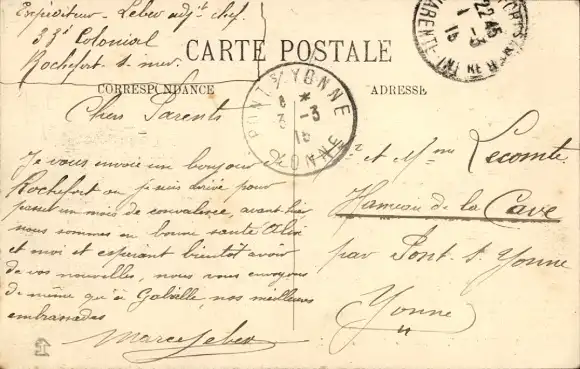 Expéditeur - Lebev adjt chef.
33e Colonial
Rochefort s. mer.
CARTE POSTALE
CORRESPONDANCE
ADRESSE
PONT S/ YONNE
3
YONNE
22 45
1 - 3
15
Chers Parents
Je vous envoie un bonjour de
Rochefort ou je suis arrivé pour
passer un mois de convalence, avant hier
nous sommes en bonne santé
et moi et esperant bientôt avoir
de vos nouvelles, nous vous envoyons
de même qu'à Gabrielle, nos meilleures
embrassades
Mr et Mme Lecomte
Hameau de la Cave
par Pont s. Yonne
Yonne